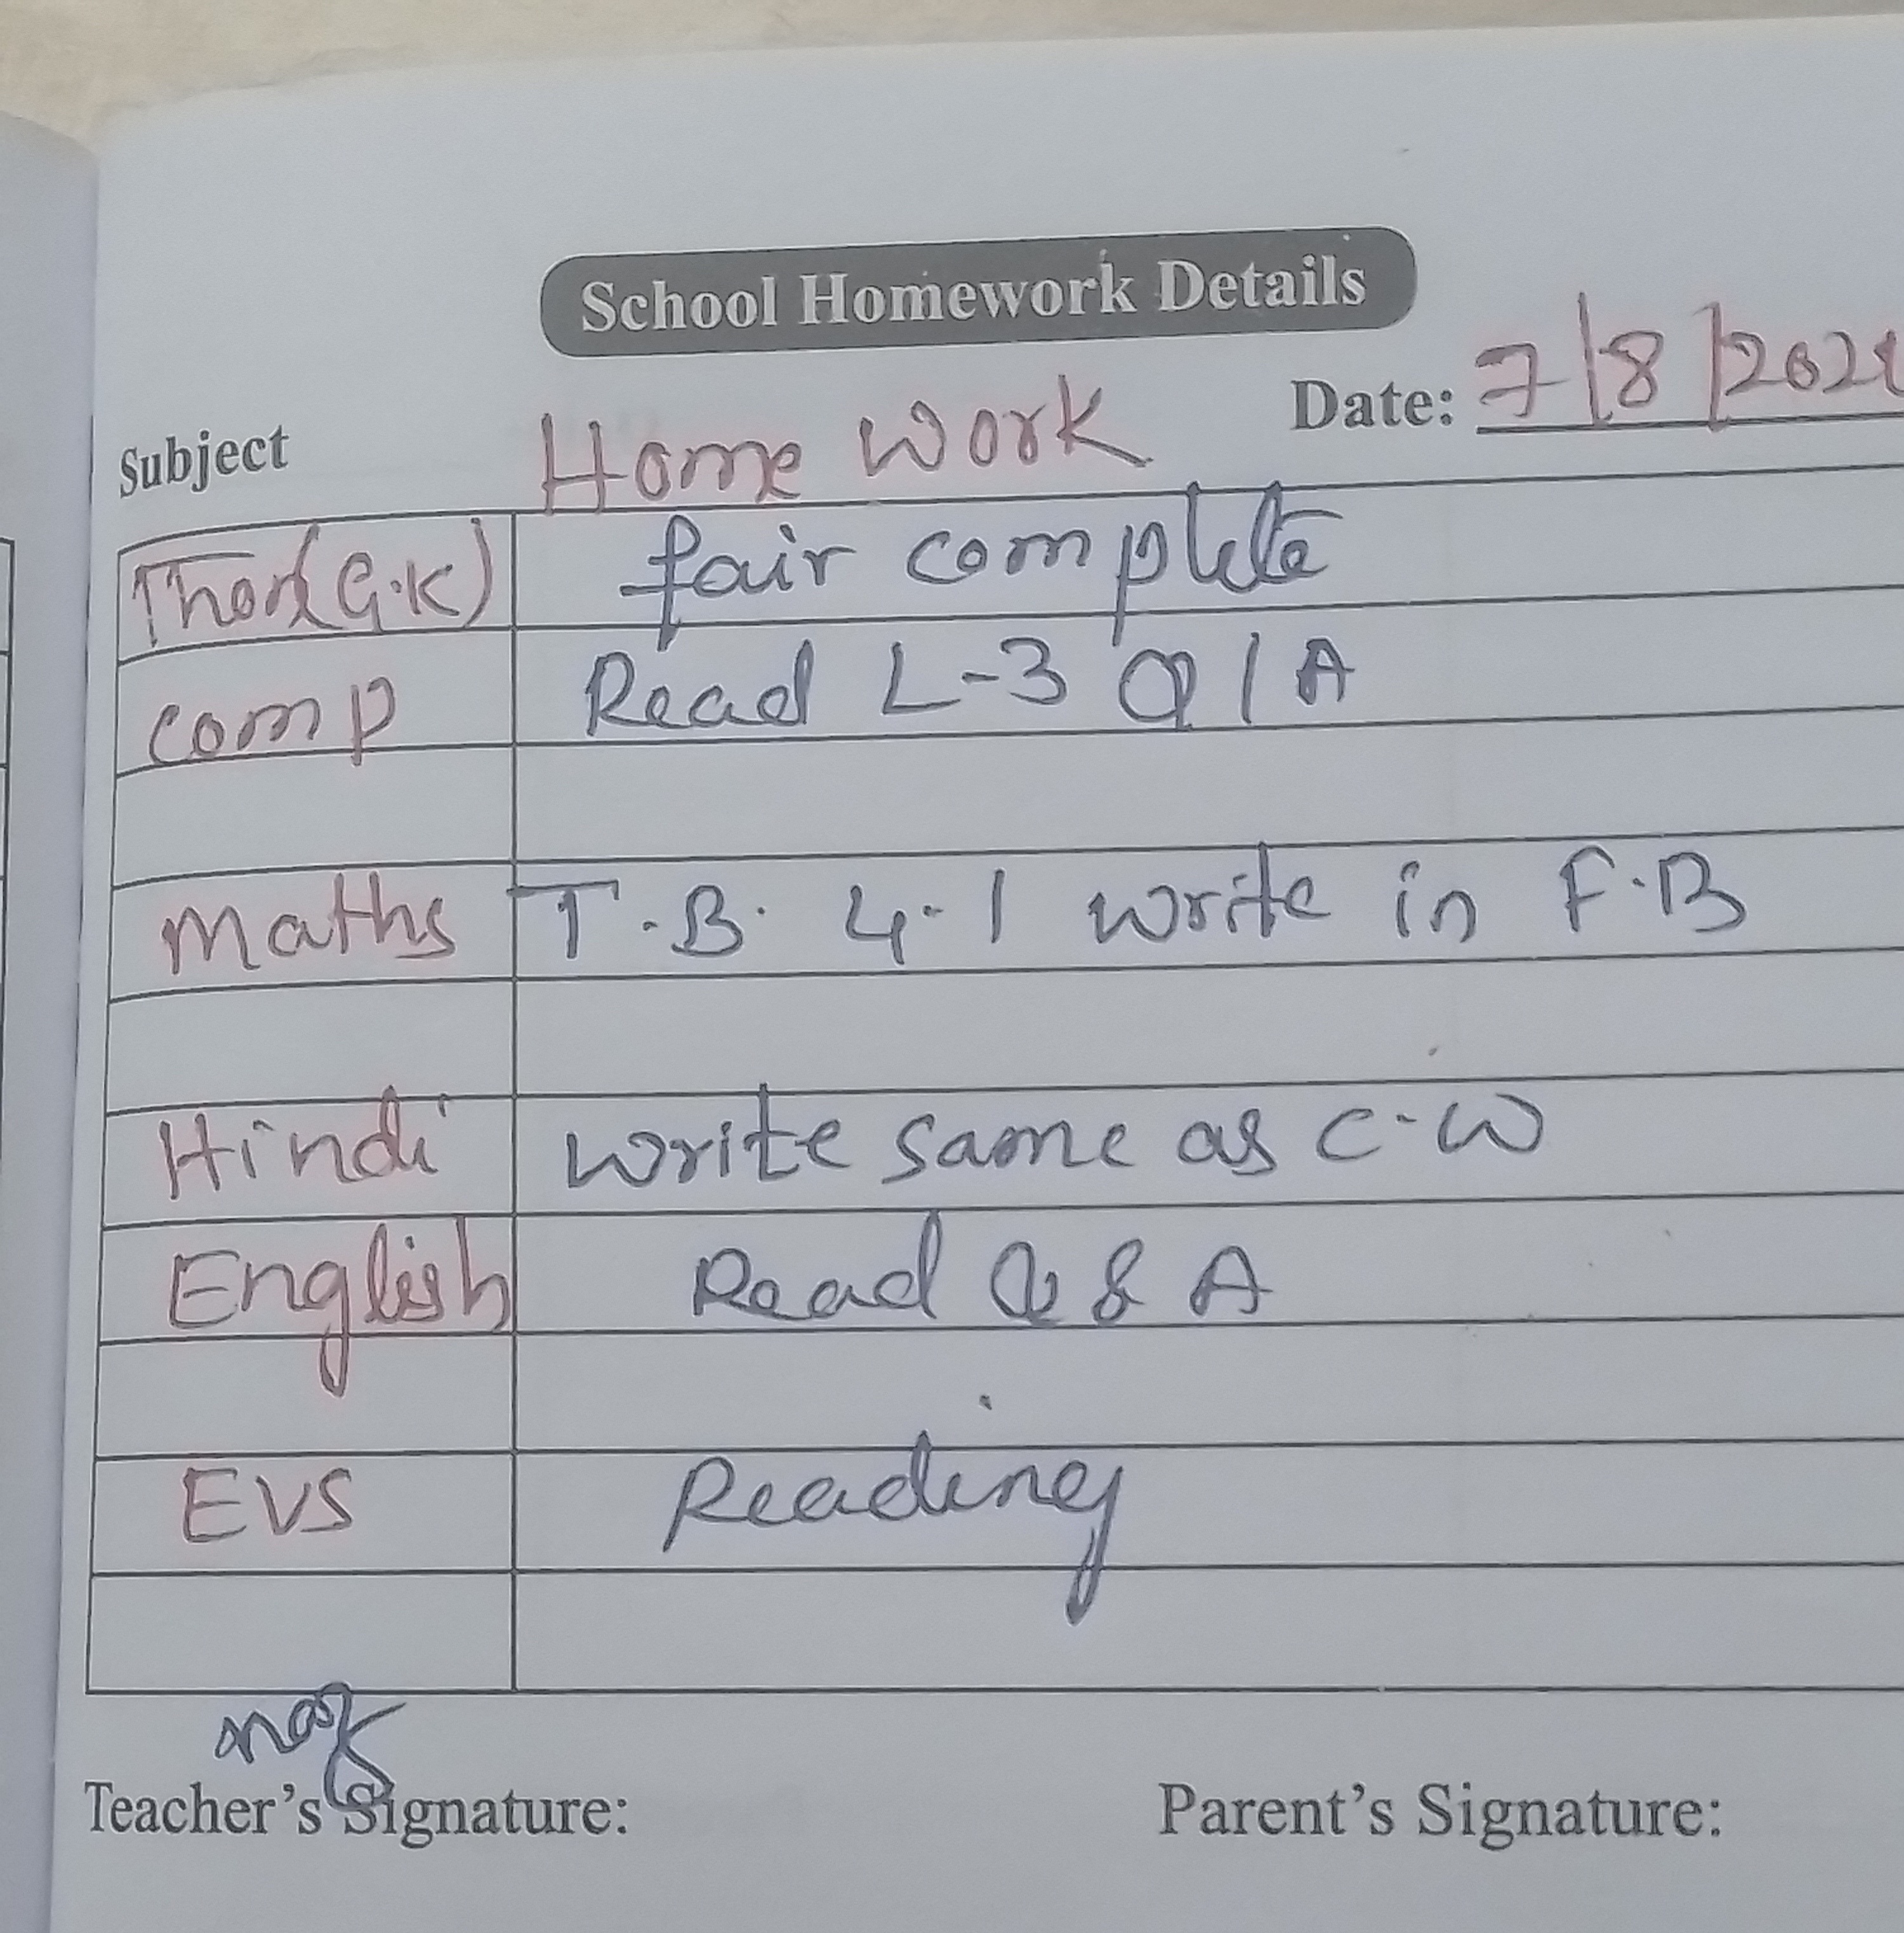 School Homework Details
Subject Home Work Date: 7/8/202
Thor(G.K) fair complete
comp Read L-3 Q/A
Maths T.B. 4.1 write in F.B
Hindi write same as C.W
English Read Q & A
EVS Reading
Teacher's Signature: Parent's Signature: